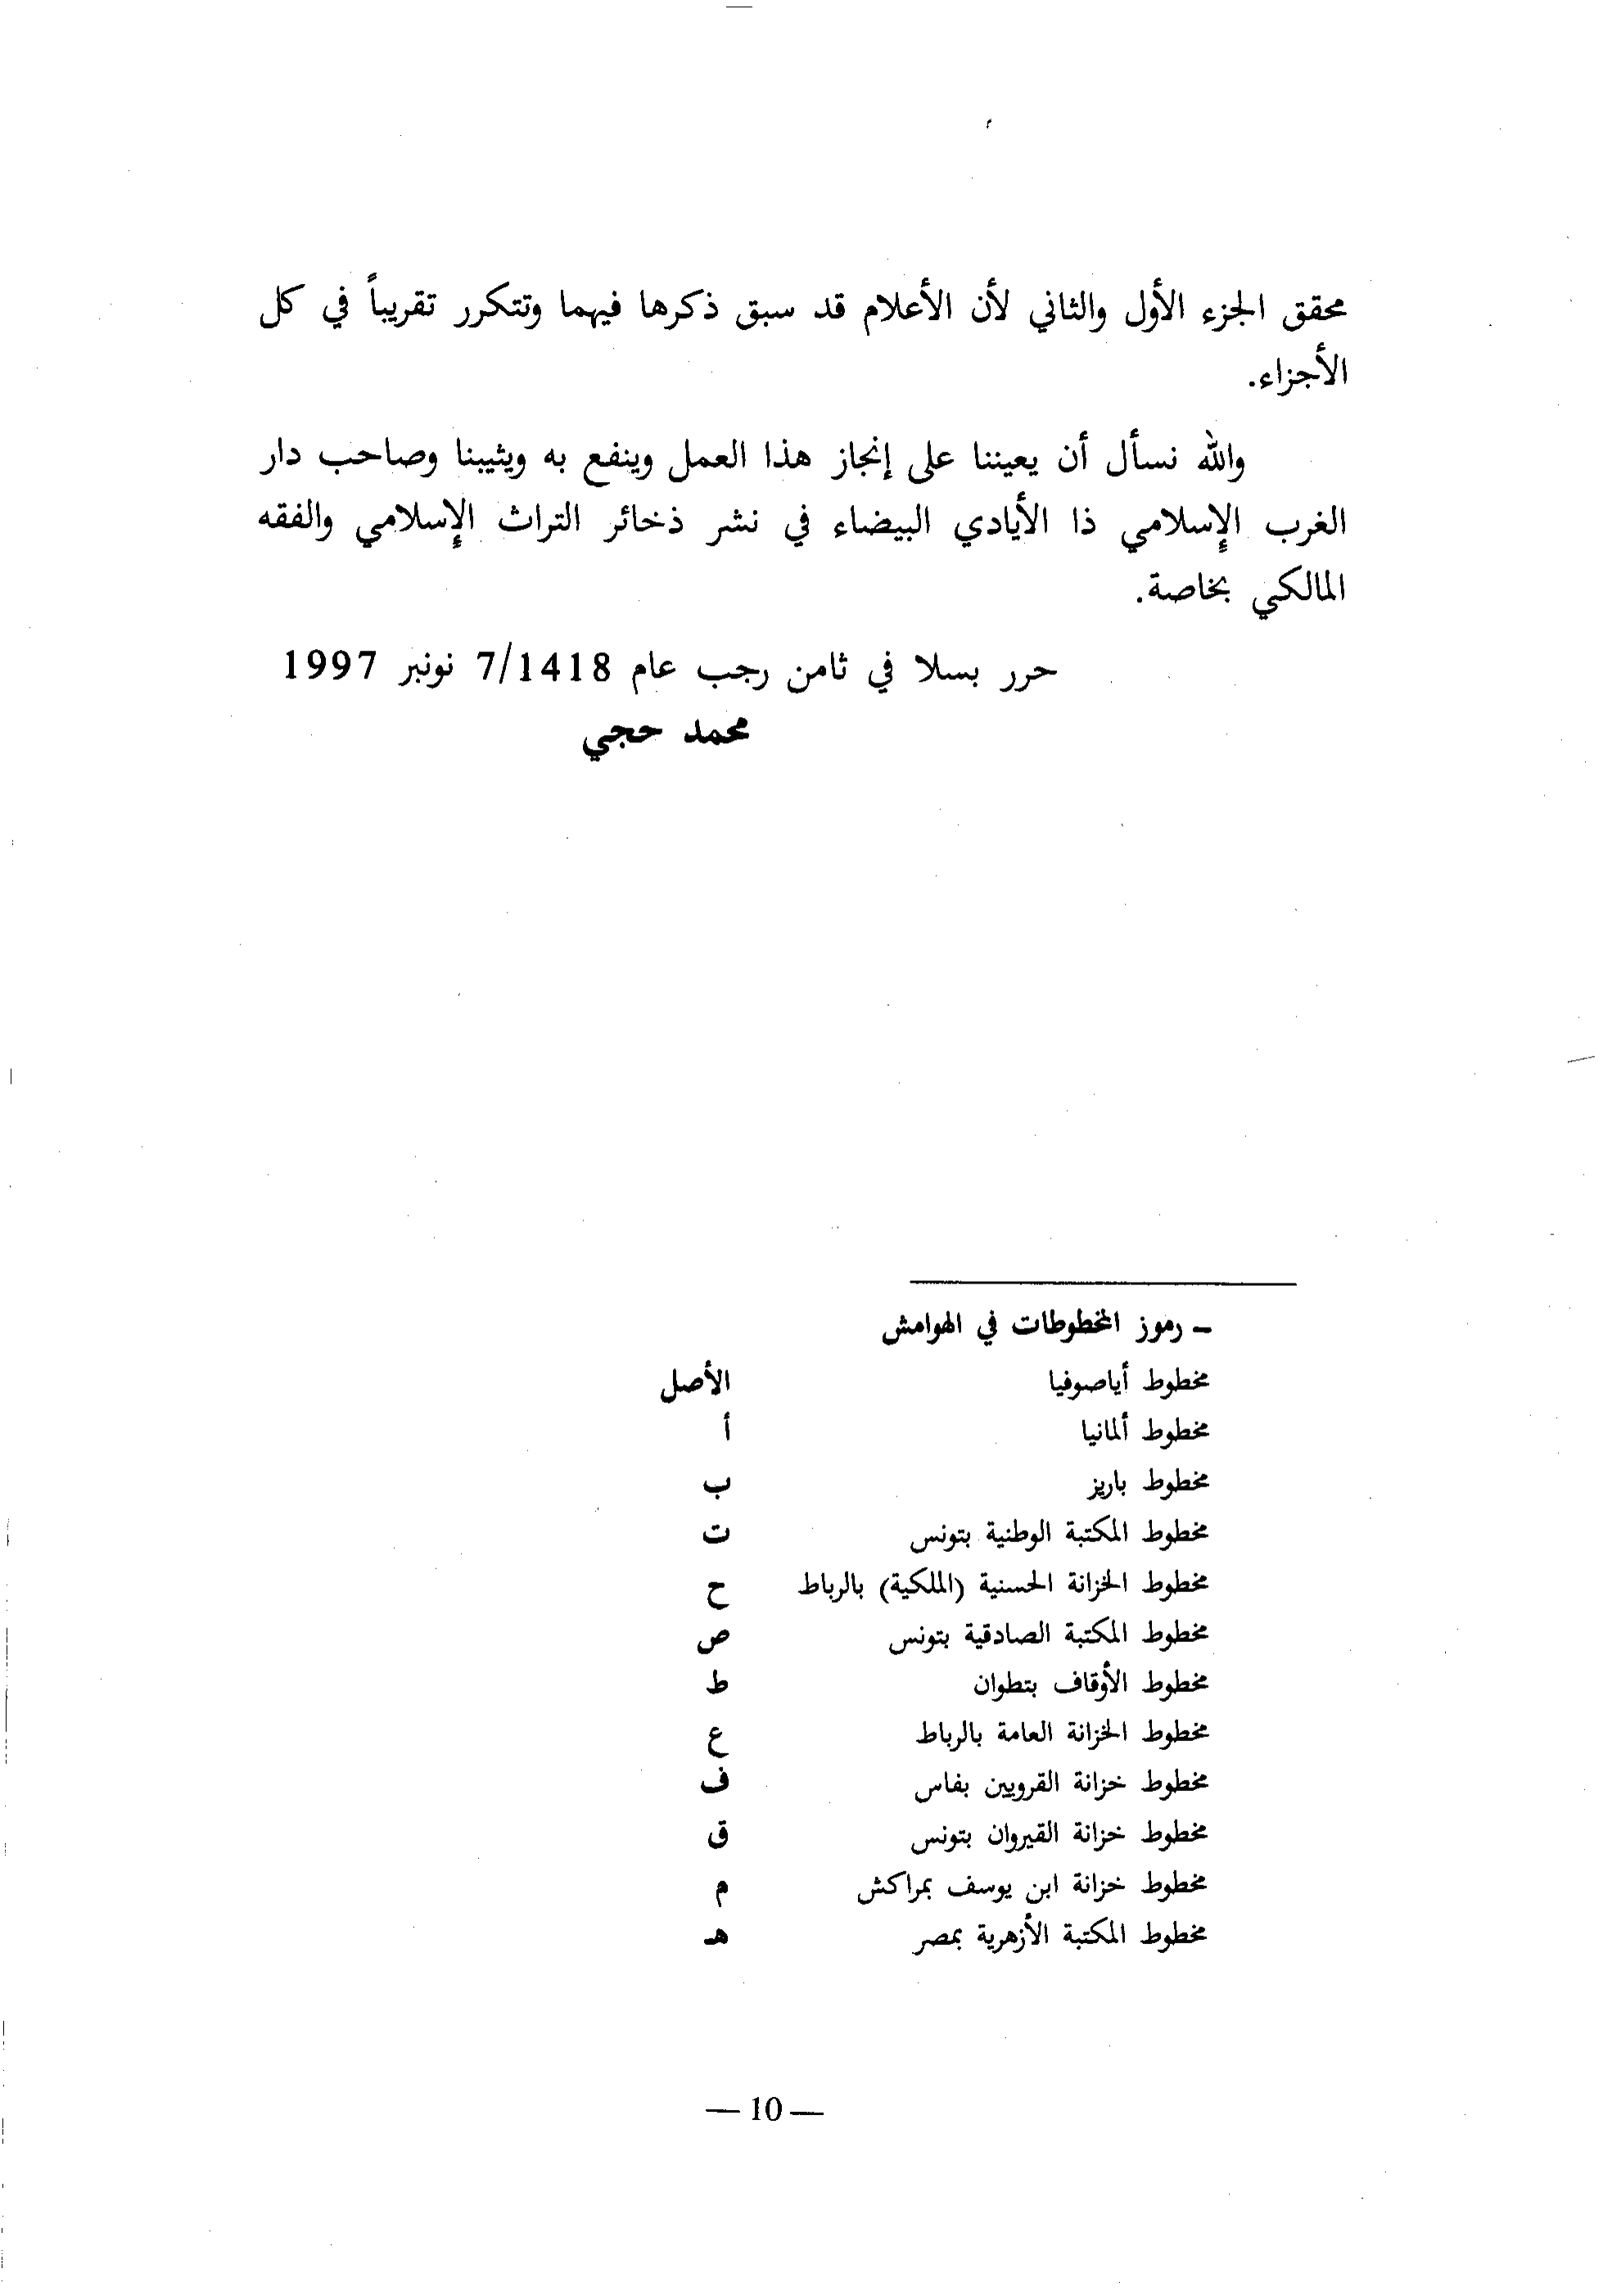 محقق الجزء الأول والثاني لأن الأعلام قد سبق ذكرها فيهما وتتكرر تقريباً في كل
الأجزاء.
والله نسأل أن يعيننا على إنجاز هذا العمل وينفع به ويثيبنا وصاحب دار
الغرب الإسلامي ذا الأيادي البيضاء في نشر ذخائر التراث الإسلامي والفقه
المالكي بخاصة.
حرر بسلا في ثامن رجب عام 7/1418 نونبر 1997
محمد حجي
ـ رموز المخطوطات في الهوامش
مخطوط أياصوفيا الأصل
مخطوط ألمانيا أ
مخطوط باريز ب
مخطوط المكتبة الوطنية بتونس ت
مخطوط الخزانة الحسنية (الملكية) بالرباط ح
مخطوط المكتبة الصادقية بتونس ص
مخطوط الأوقاف بتطوان ط
مخطوط الخزانة العامة بالرباط ع
مخطوط خزانة القرويين بفاس ف
مخطوط خزانة القيروان بتونس ق
مخطوط خزانة ابن يوسف بمراكش م
مخطوط المكتبة الأزهرية بمصر هـ
— 10 —